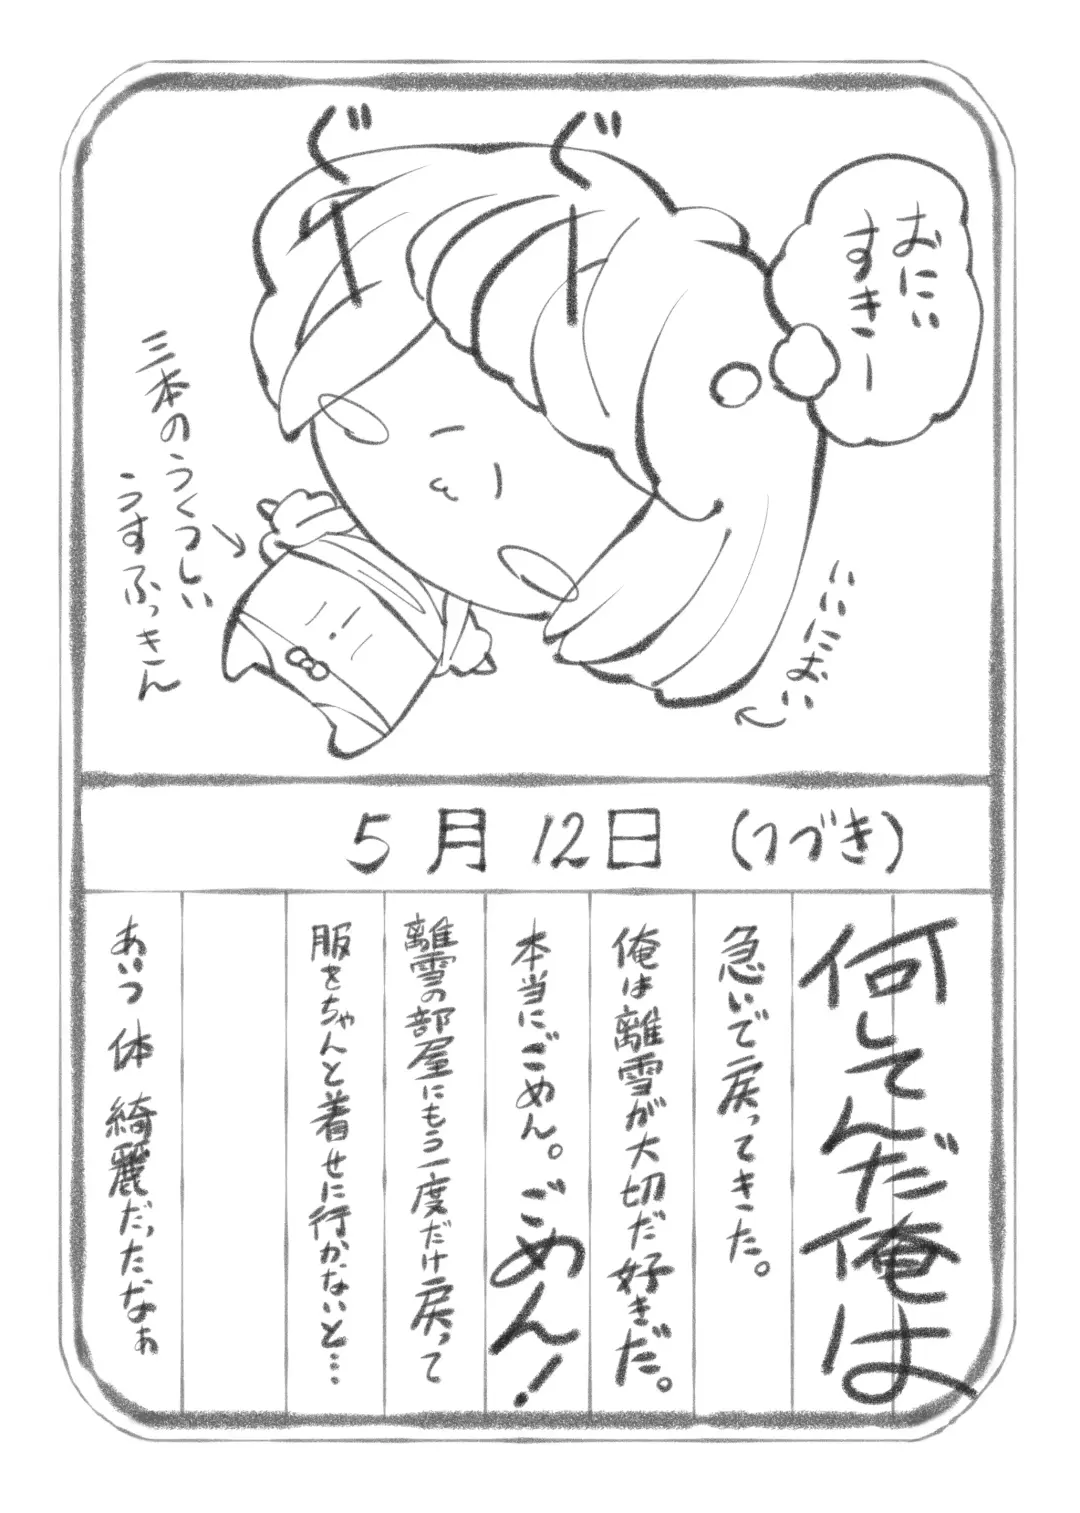 ぐー
ぐー
おにい
すきー
三本のうくつしい
うすふっきん
いいにおい
5月12日 (つづき)
何してんだ俺は
急いで戻ってきた。
俺は離雪が大切だ好きだ。
本当にごめん。ごめん!
離雪の部屋にもう一度だけ戻って
服をちゃんと着せに行かないと…
あいつ 体 綺麗だったなぁ